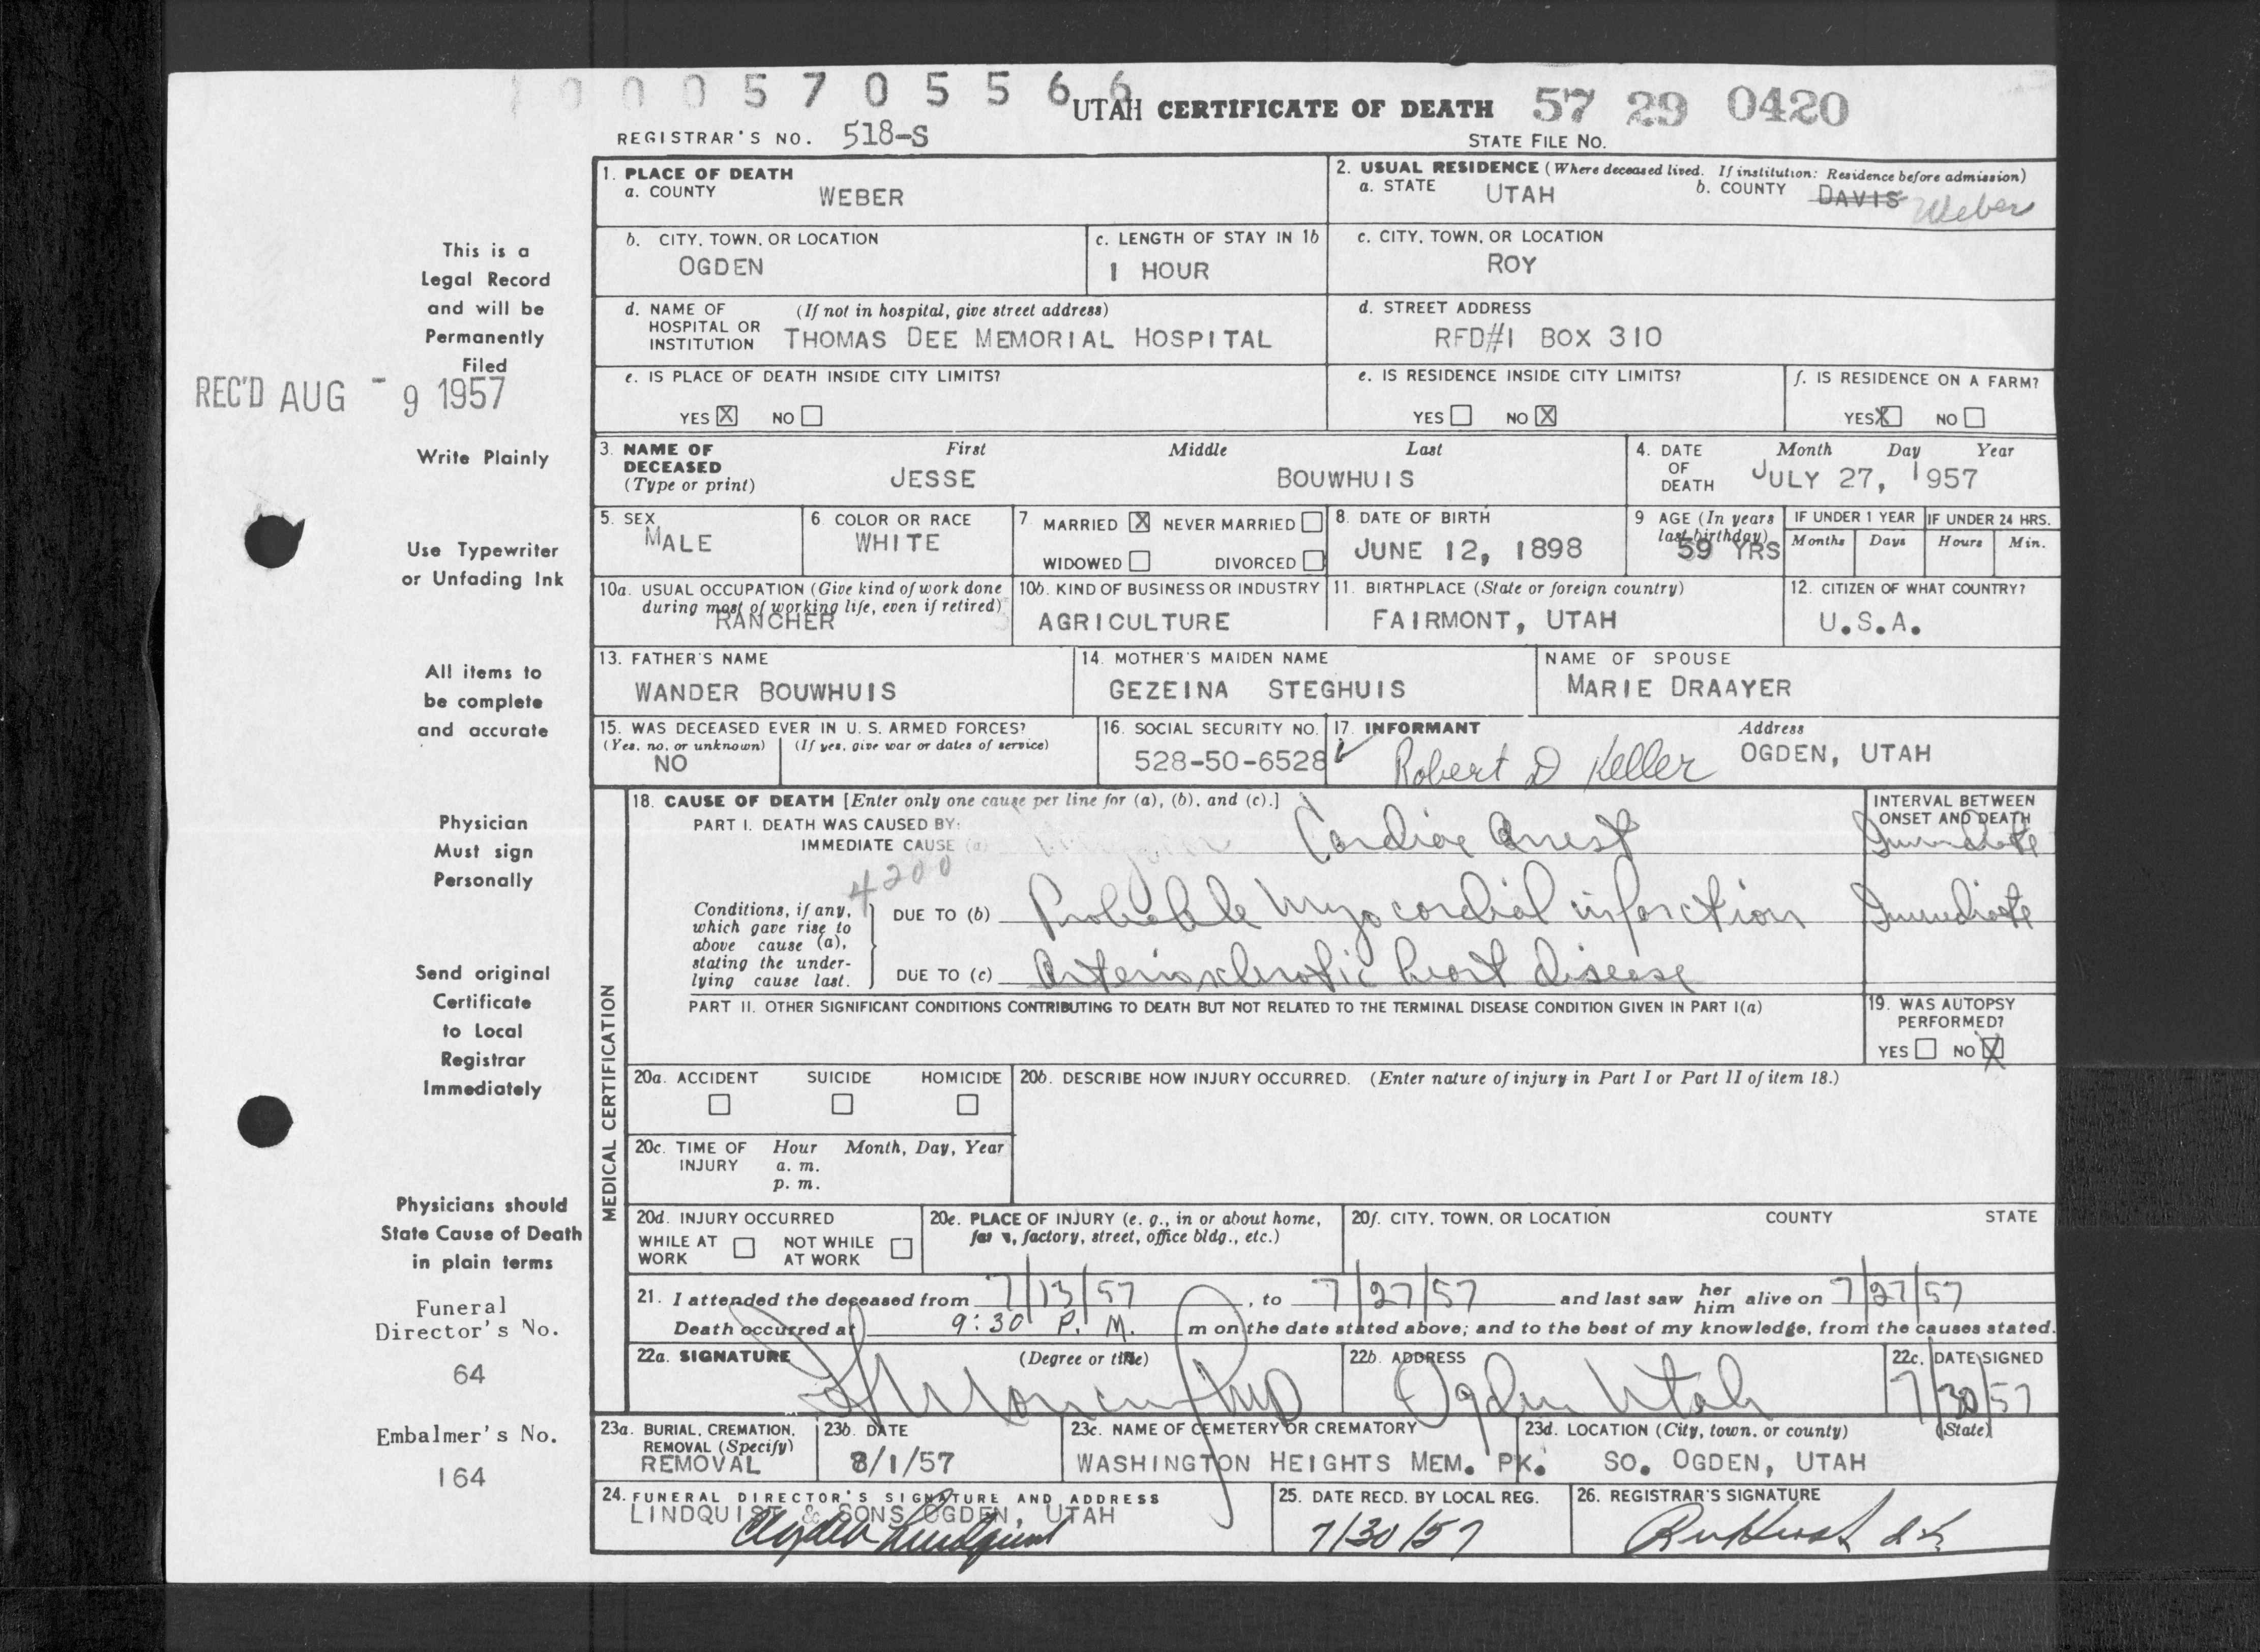 0 0 0 5 7 0 5 5 6 6
UTAH CERTIFICATE OF DEATH 57 29 0420
REGISTRAR'S NO. 518-S STATE FILE NO.
1. PLACE OF DEATH
a. COUNTY WEBER
2. USUAL RESIDENCE (Where deceased lived. If institution: Residence before admission)
a. STATE UTAH b. COUNTY DAVIS Weber
b. CITY, TOWN, OR LOCATION
OGDEN
c. LENGTH OF STAY IN 1b
1 HOUR
c. CITY, TOWN, OR LOCATION
ROY
d. NAME OF HOSPITAL OR INSTITUTION (If not in hospital, give street address)
THOMAS DEE MEMORIAL HOSPITAL
d. STREET ADDRESS
RFD#1 BOX 310
e. IS PLACE OF DEATH INSIDE CITY LIMITS?
YES X NO
e. IS RESIDENCE INSIDE CITY LIMITS?
YES NO X
f. IS RESIDENCE ON A FARM?
YES X NO
3. NAME OF DECEASED (Type or print) First Middle Last
JESSE BOUWHUIS
4. DATE OF DEATH Month Day Year
JULY 27, 1957
5. SEX
MALE
6. COLOR OR RACE
WHITE
7. MARRIED X NEVER MARRIED
WIDOWED DIVORCED
8. DATE OF BIRTH
JUNE 12, 1898
9 AGE (In years last birthday)
59 YRS
IF UNDER 1 YEAR IF UNDER 24 HRS.
Months Days Hours Min.
10a. USUAL OCCUPATION (Give kind of work done during most of working life, even if retired)
RANCHER
10b. KIND OF BUSINESS OR INDUSTRY
AGRICULTURE
11. BIRTHPLACE (State or foreign country)
FAIRMONT, UTAH
12. CITIZEN OF WHAT COUNTRY?
U.S.A.
13. FATHER'S NAME
WANDER BOUWHUIS
14. MOTHER'S MAIDEN NAME
GEZEINA STEGHUIS
NAME OF SPOUSE
MARIE DRAAYER
15. WAS DECEASED EVER IN U. S. ARMED FORCES?
(Yes, no, or unknown) (If yes, give war or dates of service)
NO
16. SOCIAL SECURITY NO.
528-50-6528
17. INFORMANT Address
Robert D Keller OGDEN, UTAH
MEDICAL CERTIFICATION
18. CAUSE OF DEATH [Enter only one cause per line for (a), (b), and (c).]
PART I. DEATH WAS CAUSED BY:
IMMEDIATE CAUSE (a) Cardiac Arrest
INTERVAL BETWEEN ONSET AND DEATH
Immediate
4200
Conditions, if any, which gave rise to above cause (a), stating the underlying cause last.
DUE TO (b) Probable Myocardial infarction Immediate
DUE TO (c) Arteriosclerotic heart disease
PART II. OTHER SIGNIFICANT CONDITIONS CONTRIBUTING TO DEATH BUT NOT RELATED TO THE TERMINAL DISEASE CONDITION GIVEN IN PART I(a)
19. WAS AUTOPSY PERFORMED?
YES NO X
20a. ACCIDENT SUICIDE HOMICIDE
20b. DESCRIBE HOW INJURY OCCURRED. (Enter nature of injury in Part I or Part II of item 18.)
20c. TIME OF INJURY Hour Month, Day, Year
a. m.
p. m.
20d. INJURY OCCURRED
WHILE AT WORK NOT WHILE AT WORK
20e. PLACE OF INJURY (e. g., in or about home, farm, factory, street, office bldg., etc.)
20f. CITY, TOWN, OR LOCATION COUNTY STATE
21. I attended the deceased from 7/13/57, to 7/27/57 and last saw her him alive on 7/27/57
Death occurred at 9:30 P. M. m on the date stated above; and to the best of my knowledge, from the causes stated.
22a. SIGNATURE (Degree or title)
MD
22b. ADDRESS
Ogden Utah
22c. DATE SIGNED
7/30/57
23a. BURIAL, CREMATION, REMOVAL (Specify)
REMOVAL
23b. DATE
8/1/57
23c. NAME OF CEMETERY OR CREMATORY
WASHINGTON HEIGHTS MEM. PK.
23d. LOCATION (City, town, or county) (State)
SO. OGDEN, UTAH
24. FUNERAL DIRECTOR'S SIGNATURE AND ADDRESS
LINDQUIST & SONS OGDEN, UTAH
25. DATE RECD. BY LOCAL REG.
7/30/57
26. REGISTRAR'S SIGNATURE
This is a
Legal Record
and will be
Permanently
Filed
REC'D AUG - 9 1957
Write Plainly
Use Typewriter
or Unfading Ink
All items to
be complete
and accurate
Physician
Must sign
Personally
Send original
Certificate
to Local
Registrar
Immediately
Physicians should
State Cause of Death
in plain terms
Funeral
Director's No.
64
Embalmer's No.
164